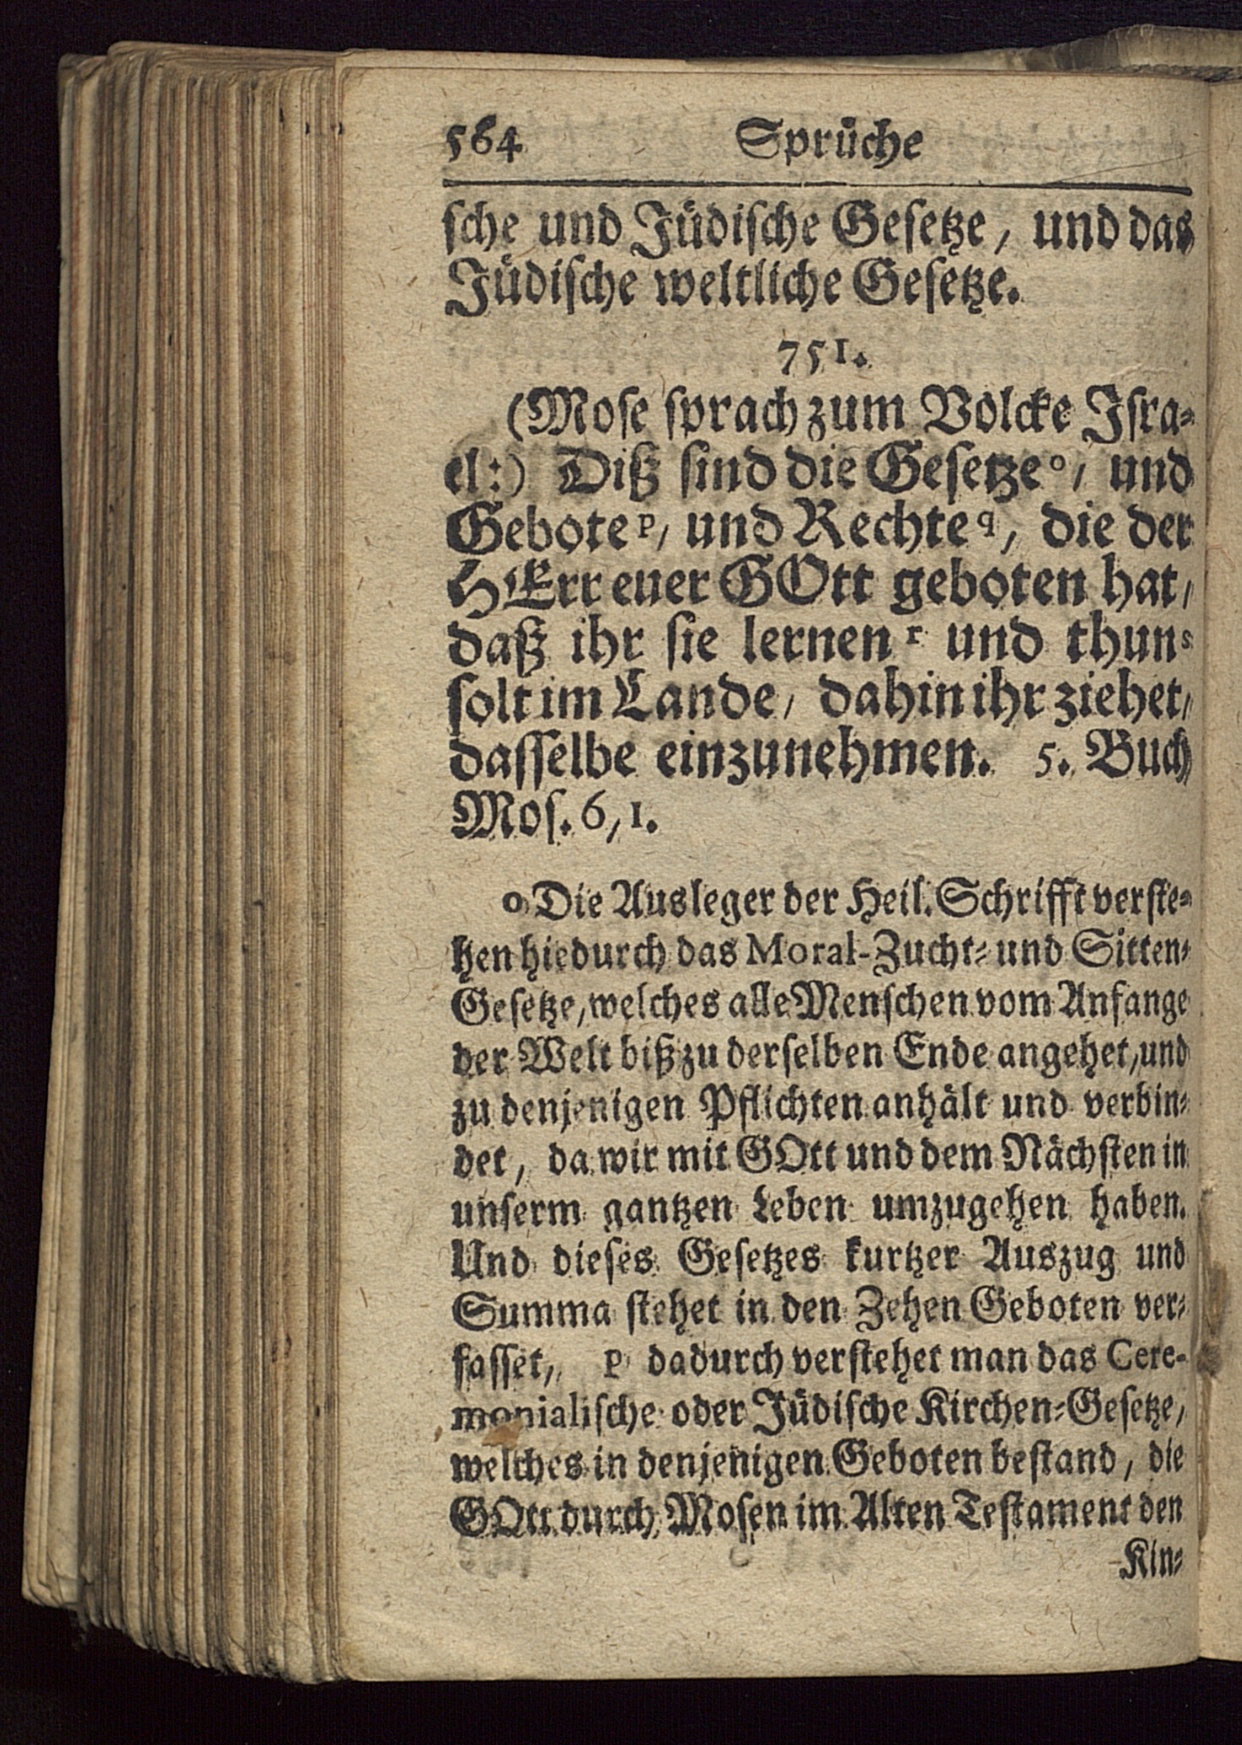 564 Sprüche
sche und Jüdische Gesetze, und das
Jüdische weltliche Gesetze.
751.
(Mose sprach zum Volcke Isra-
el:) Diß sind die Gesetze o, und
Gebote p, und Rechte q, die der
HErr euer GOtt geboten hat,
daß ihr sie lernen r und thun s
solt im Lande, dahin ihr ziehet,
dasselbe einzunehmen. 5. Buch
Mos. 6, 1.
o Die Ausleger der Heil. Schrifft verste-
hen hiedurch das Moral-Zucht- und Sitten-
Gesetze, welches alle Menschen vom Anfange
der Welt biß zu derselben Ende angehet, und
zu denjenigen Pflichten anhält und verbin-
det, da wir mit GOtt und dem Nächsten in
unserm gantzen Leben umzugehen haben.
Und dieses Gesetzes kurtzer Auszug und
Summa stehet in den Zehen Geboten ver-
fasset, p dadurch verstehet man das Cere-
monialische oder Jüdische Kirchen-Gesetze,
welches in denjenigen Geboten bestand, die
GOtt durch Mosen im Alten Testament den
Kin-